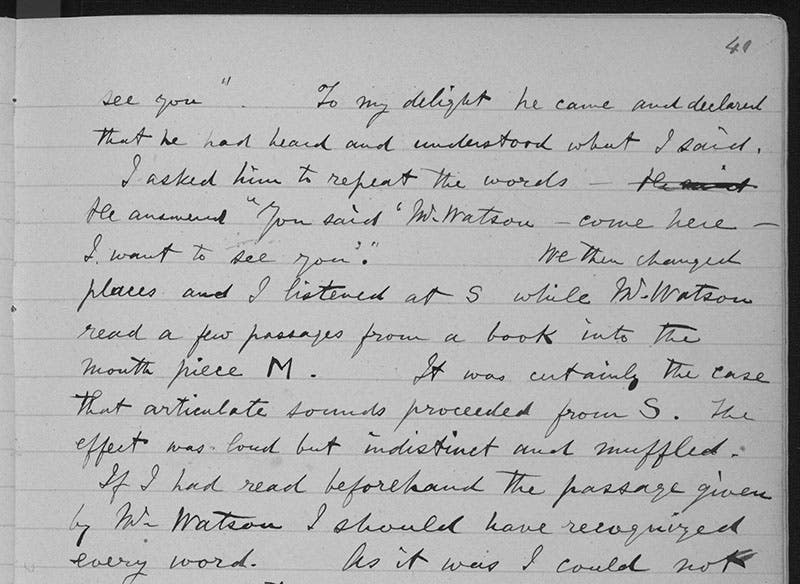 41
see you". To my delight he came and declared
that he had heard and understood what I said.
I asked him to repeat the words —
He answered "You said 'Mr. Watson — come here —
I want to see you'." We then changed
places and I listened at S while Mr. Watson
read a few passages from a book into the
mouth piece M. It was certainly the case
that articulate sounds proceeded from S. The
effect was loud but indistinct and muffled.
If I had read beforehand the passage given
by Mr. Watson I should have recognized
every word. As it was I could not